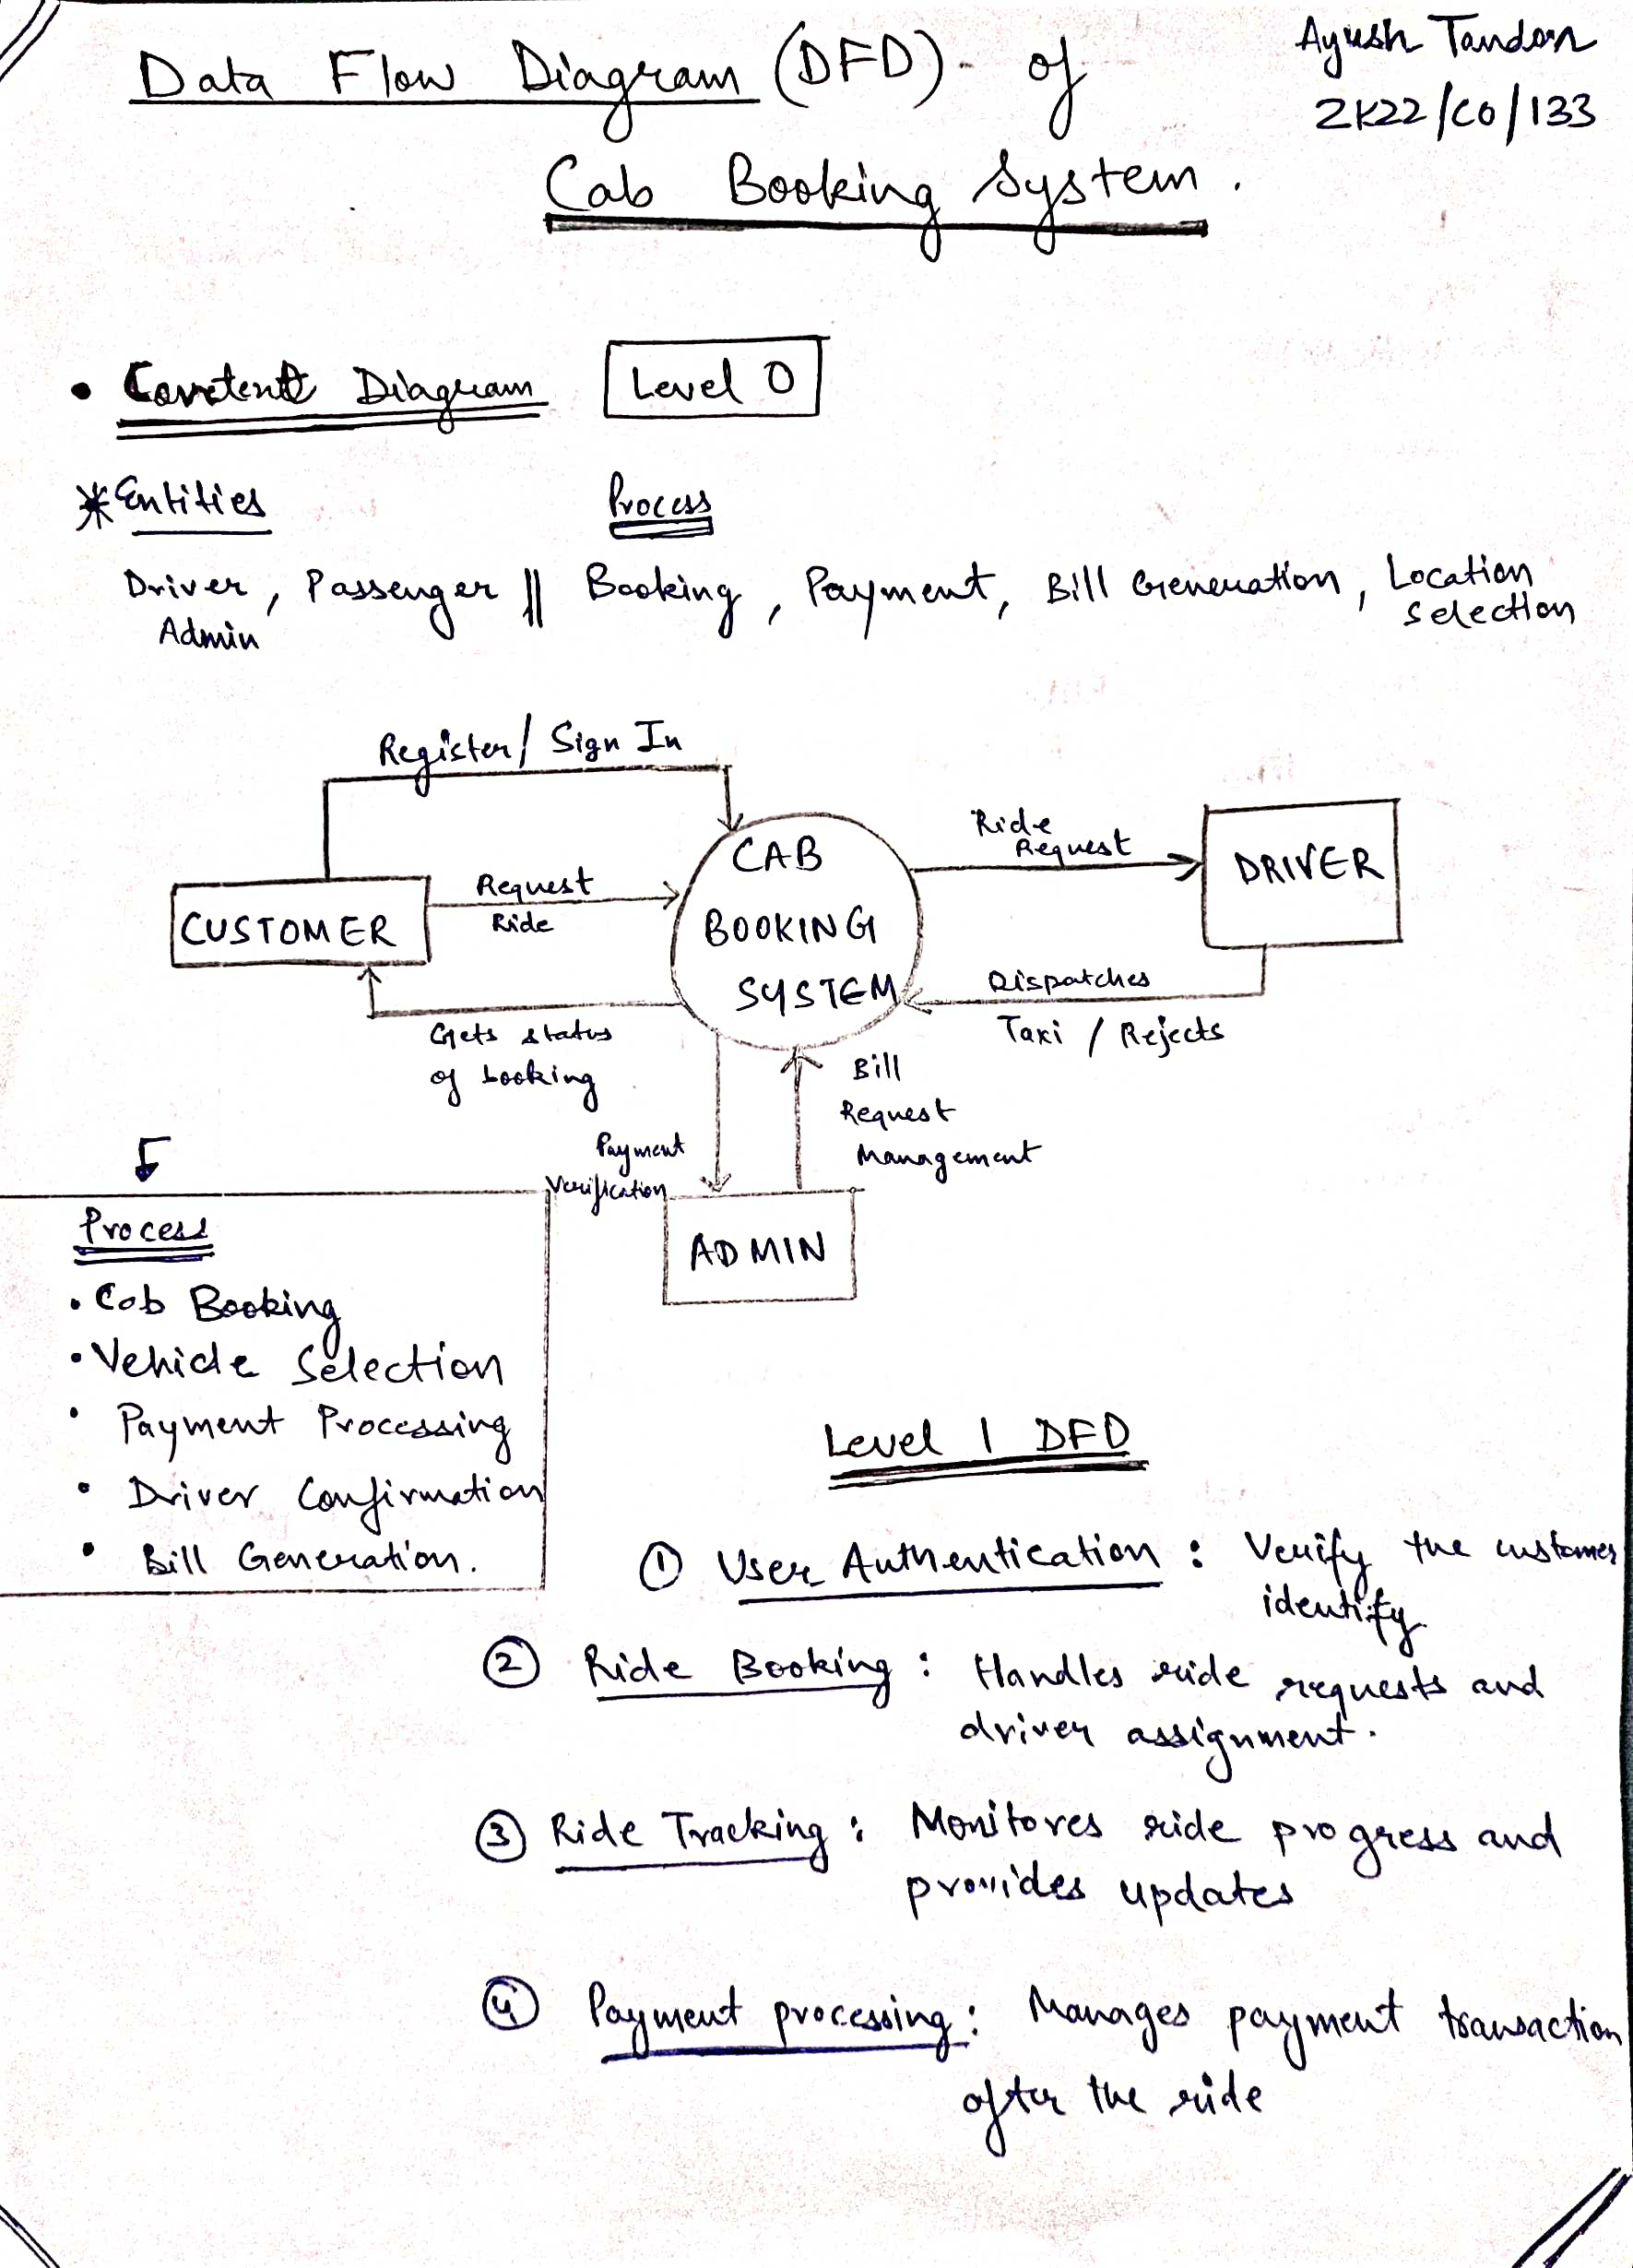 Data Flow Diagram (DFD)- of
Ayush Tandon
2K22/CO/133
Cab Booking System.
• Context Diagram
Level 0
* Entities
Process
Driver, Passenger || Booking, Payment, Bill Generation, Location
Admin
Selection
Register/ Sign In
Ride
Request
CAB
BOOKING
SYSTEM
DRIVER
CUSTOMER
Request
Ride
Dispatches
Taxi / Rejects
Gets status
of booking
Bill
Request
Management
Payment
Verification
ADMIN
Process
• Cob Booking
• Vehicle Selection
• Payment Processing
• Driver Confirmation
• Bill Generation.
Level 1 DFD
① User Authentication : Verify the customer
identify
② Ride Booking : Handles ride requests and
driver assignment.
③ Ride Tracking : Monitores ride progress and
provides updates
④ Payment processing : Manages payment transaction
after the ride